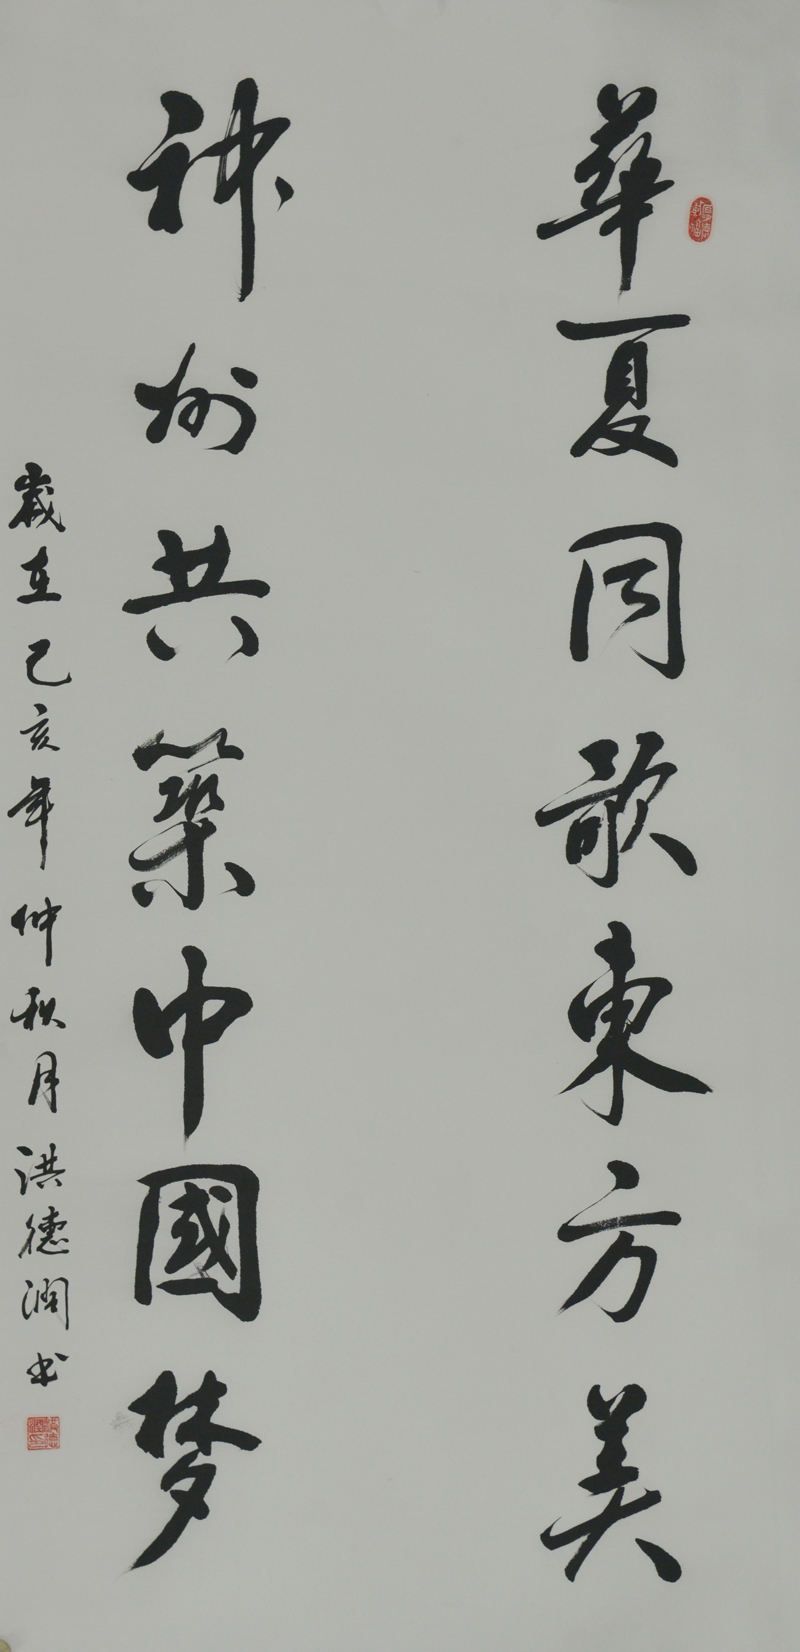 華夏同歌東方美
神州共築中國梦
歲在己亥年仲秋月洪德润书